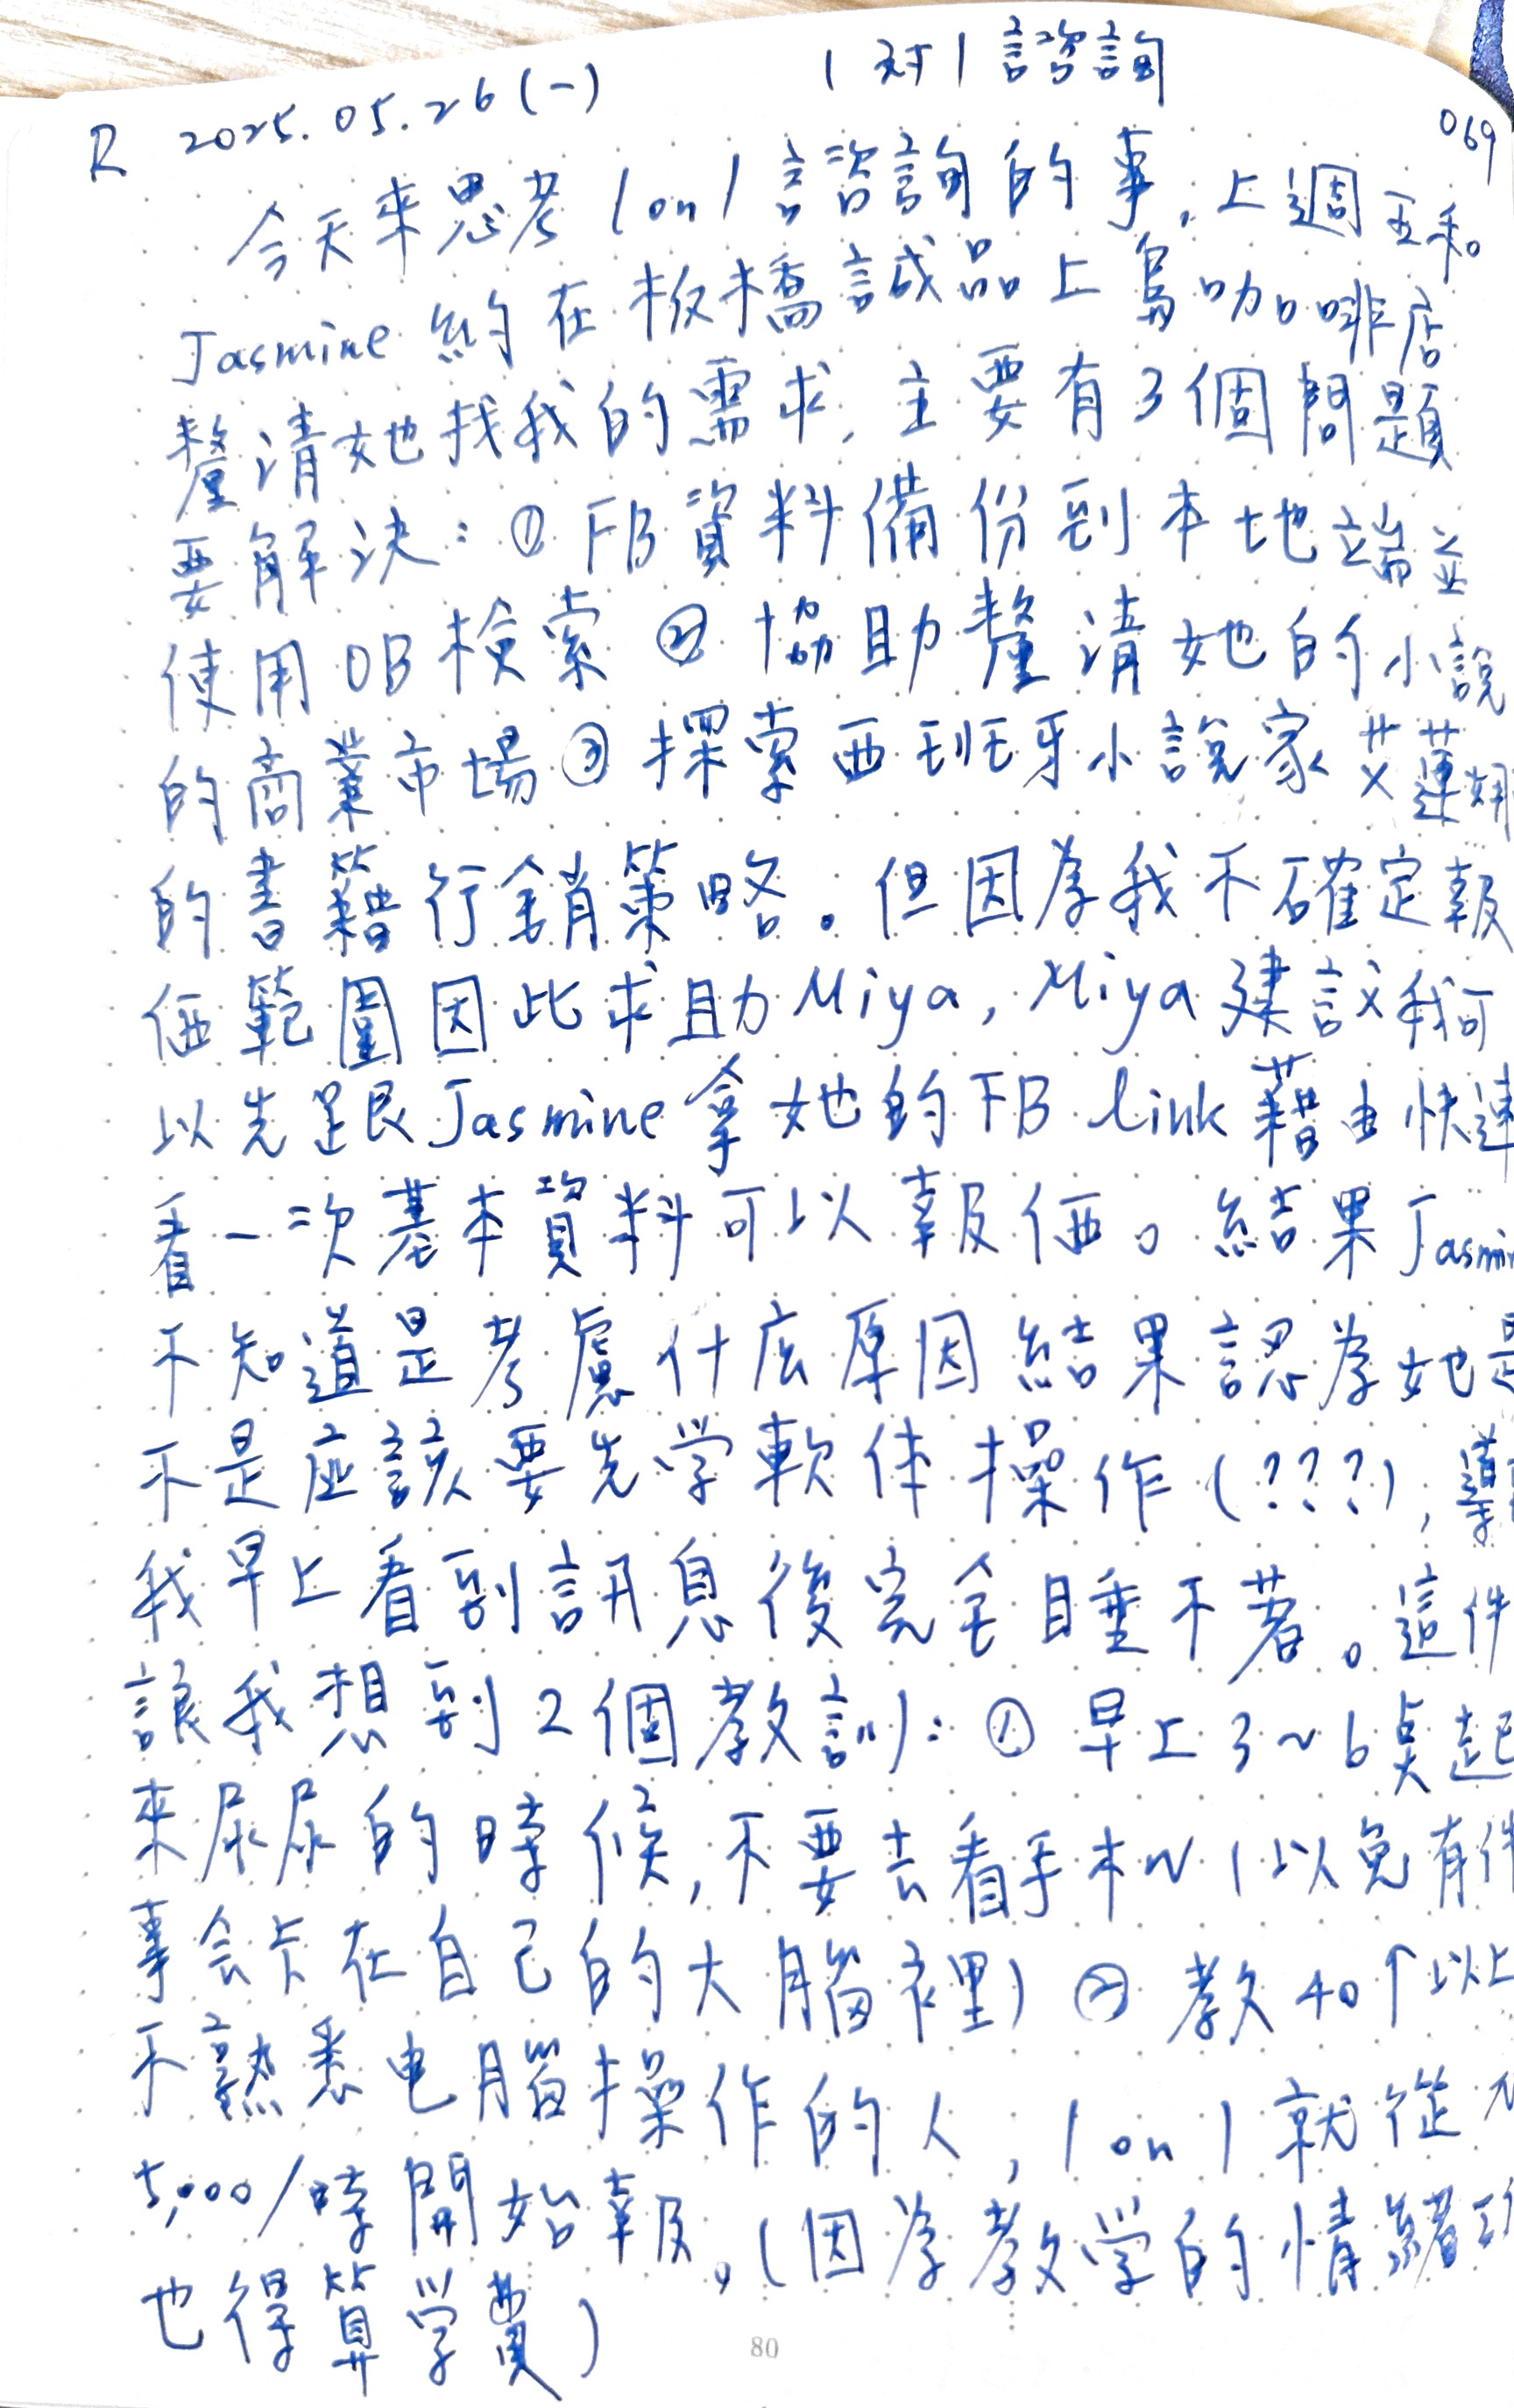 1對1諮詢
R 2025.05.26(一)
069
今天來思考1on1諮詢的事,上週五和
Jasmine約在板橋誠品上島咖啡店
釐清她找我的需求,主要有3個問題
要解決:①FB資料備份到本地端並
使用OB檢索②協助釐清她的小說
的商業市場③探索西班牙小說家艾蓮娜
的書籍行銷策略。但因為我不確定報
価範圍因此求助Miya,Miya建議我可
以先跟Jasmine拿她的FB link藉由快速
看一次基本資料可以報価。結果Jasmin
不知道是考慮什広原因結果認為她是
不是应該要先学軟体操作(???),導
我早上看到訊息後完全睡不著。這件
讓我想到2個教訓:①早上3~6点起
來尿尿的時候,不要去看手机(以免有件
事会卡在自己的大腦裡)②教40↑以上
不熟悉电腦操作的人,1on1就從
5,000/時開始報。(因為教学的情緒
也得算学費)
80